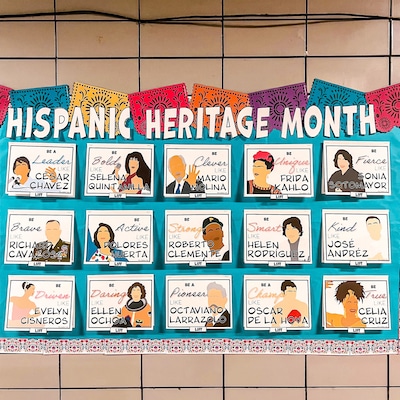 HISPANIC HERITAGE MONTH
BE A
Leader
LIKE
CÉSAR
CHÁVEZ
LIFT
BE
Bold
LIKE
SELENA
QUINTANILLA
LIFT
BE
Clever
LIKE
MARIO
MOLINA
LIFT
BE
Unique
LIKE
FRIDA
KAHLO
LIFT
BE
Fierce
LIKE
SONIA
SOTOMAYOR
LIFT
BE
Brave
LIKE
RICHARD
CAVAZOS
LIFT
BE
Active
LIKE
DOLORES
HUERTA
LIFT
BE
Strong
LIKE
ROBERTO
CLEMENTE
LIFT
BE
Smart
LIKE
HELEN
RODRIGUEZ
LIFT
BE
Kind
LIKE
JOSÉ
ANDRÉZ
LIFT
BE
Driven
LIKE
EVELYN
CISNEROS
LIFT
BE
Daring
LIKE
ELLEN
OCHOA
LIFT
BE A
Pioneer
LIKE
OCTAVIANO
LARRAZOLO
LIFT
BE A
Champ
LIKE
OSCAR
DE LA HOYA
LIFT
BE
True
LIKE
CELIA
CRUZ
LIFT